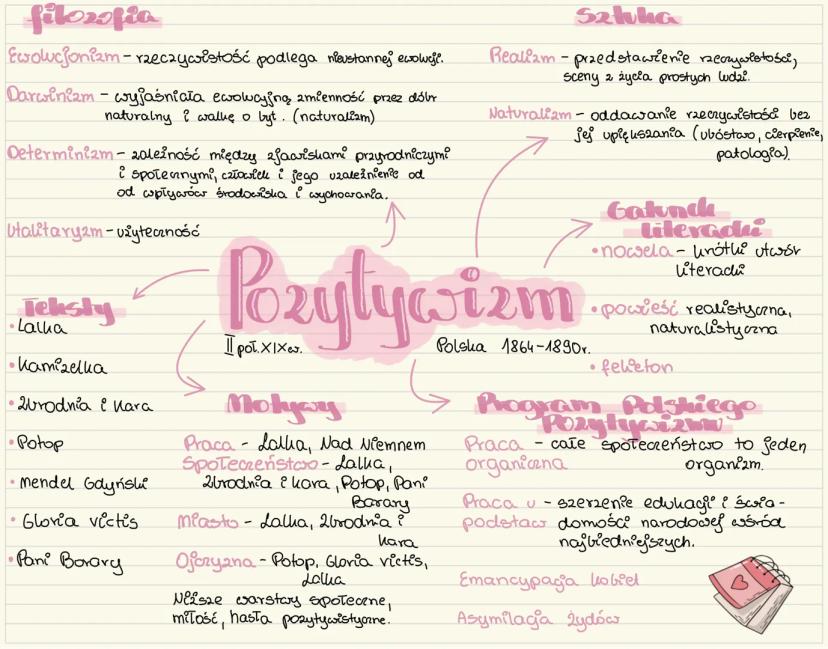 filozofia
Ewolucjonizm – rzeczywistość podlega nieustannej ewolucji.
Darwinizm – wyjaśniała ewolucyjną zmienność przez dobór
naturalny i walkę o byt. (naturalizm)
Determinizm – zależność między zjawiskami przyrodniczymi
i społecznymi, człowiek i jego uzależnienie od
od wpływów środowiska i wychowania.
Utalitaryzm – użyteczność
Sztuka
Realizm – przedstawienie rzeczywistości,
sceny z życia prostych ludzi.
Naturalizm – oddawanie rzeczywistości bez
jej upiększania (ubóstwo, cierpienie,
patologia).
Gatunki
literacki
• nowela – krótki utwór
literacki
• powieść realistyczna,
naturalistyczna
• felieton
Pozytywizm
II poł. XIX w.
Polska 1864–1890r.
Teksty
• Lalka
• Kamizelka
• Zbrodnia i kara
• Potop
• Mendel Gdyński
• Gloria victis
• Pani Bovary
Motywy
Praca – Lalka, Nad Niemnem
Społeczeństwo – Lalka,
Zbrodnia i kara, Potop, Pani
Bovary
Miasto – Lalka, Zbrodnia i
kara
Ojczyzna – Potop, Gloria victis,
Lalka
Niższe warstwy społeczne,
miłość, hasła pozytywistyczne.
Program Polskiego
Pozytywizmu
Praca – całe społeczeństwo to jeden
organiczna organizm.
Praca u – szerzenie edukacji i świa-
podstaw domości narodowej wśród
najbiedniejszych.
Emancypacja kobiet
Asymilacja żydów